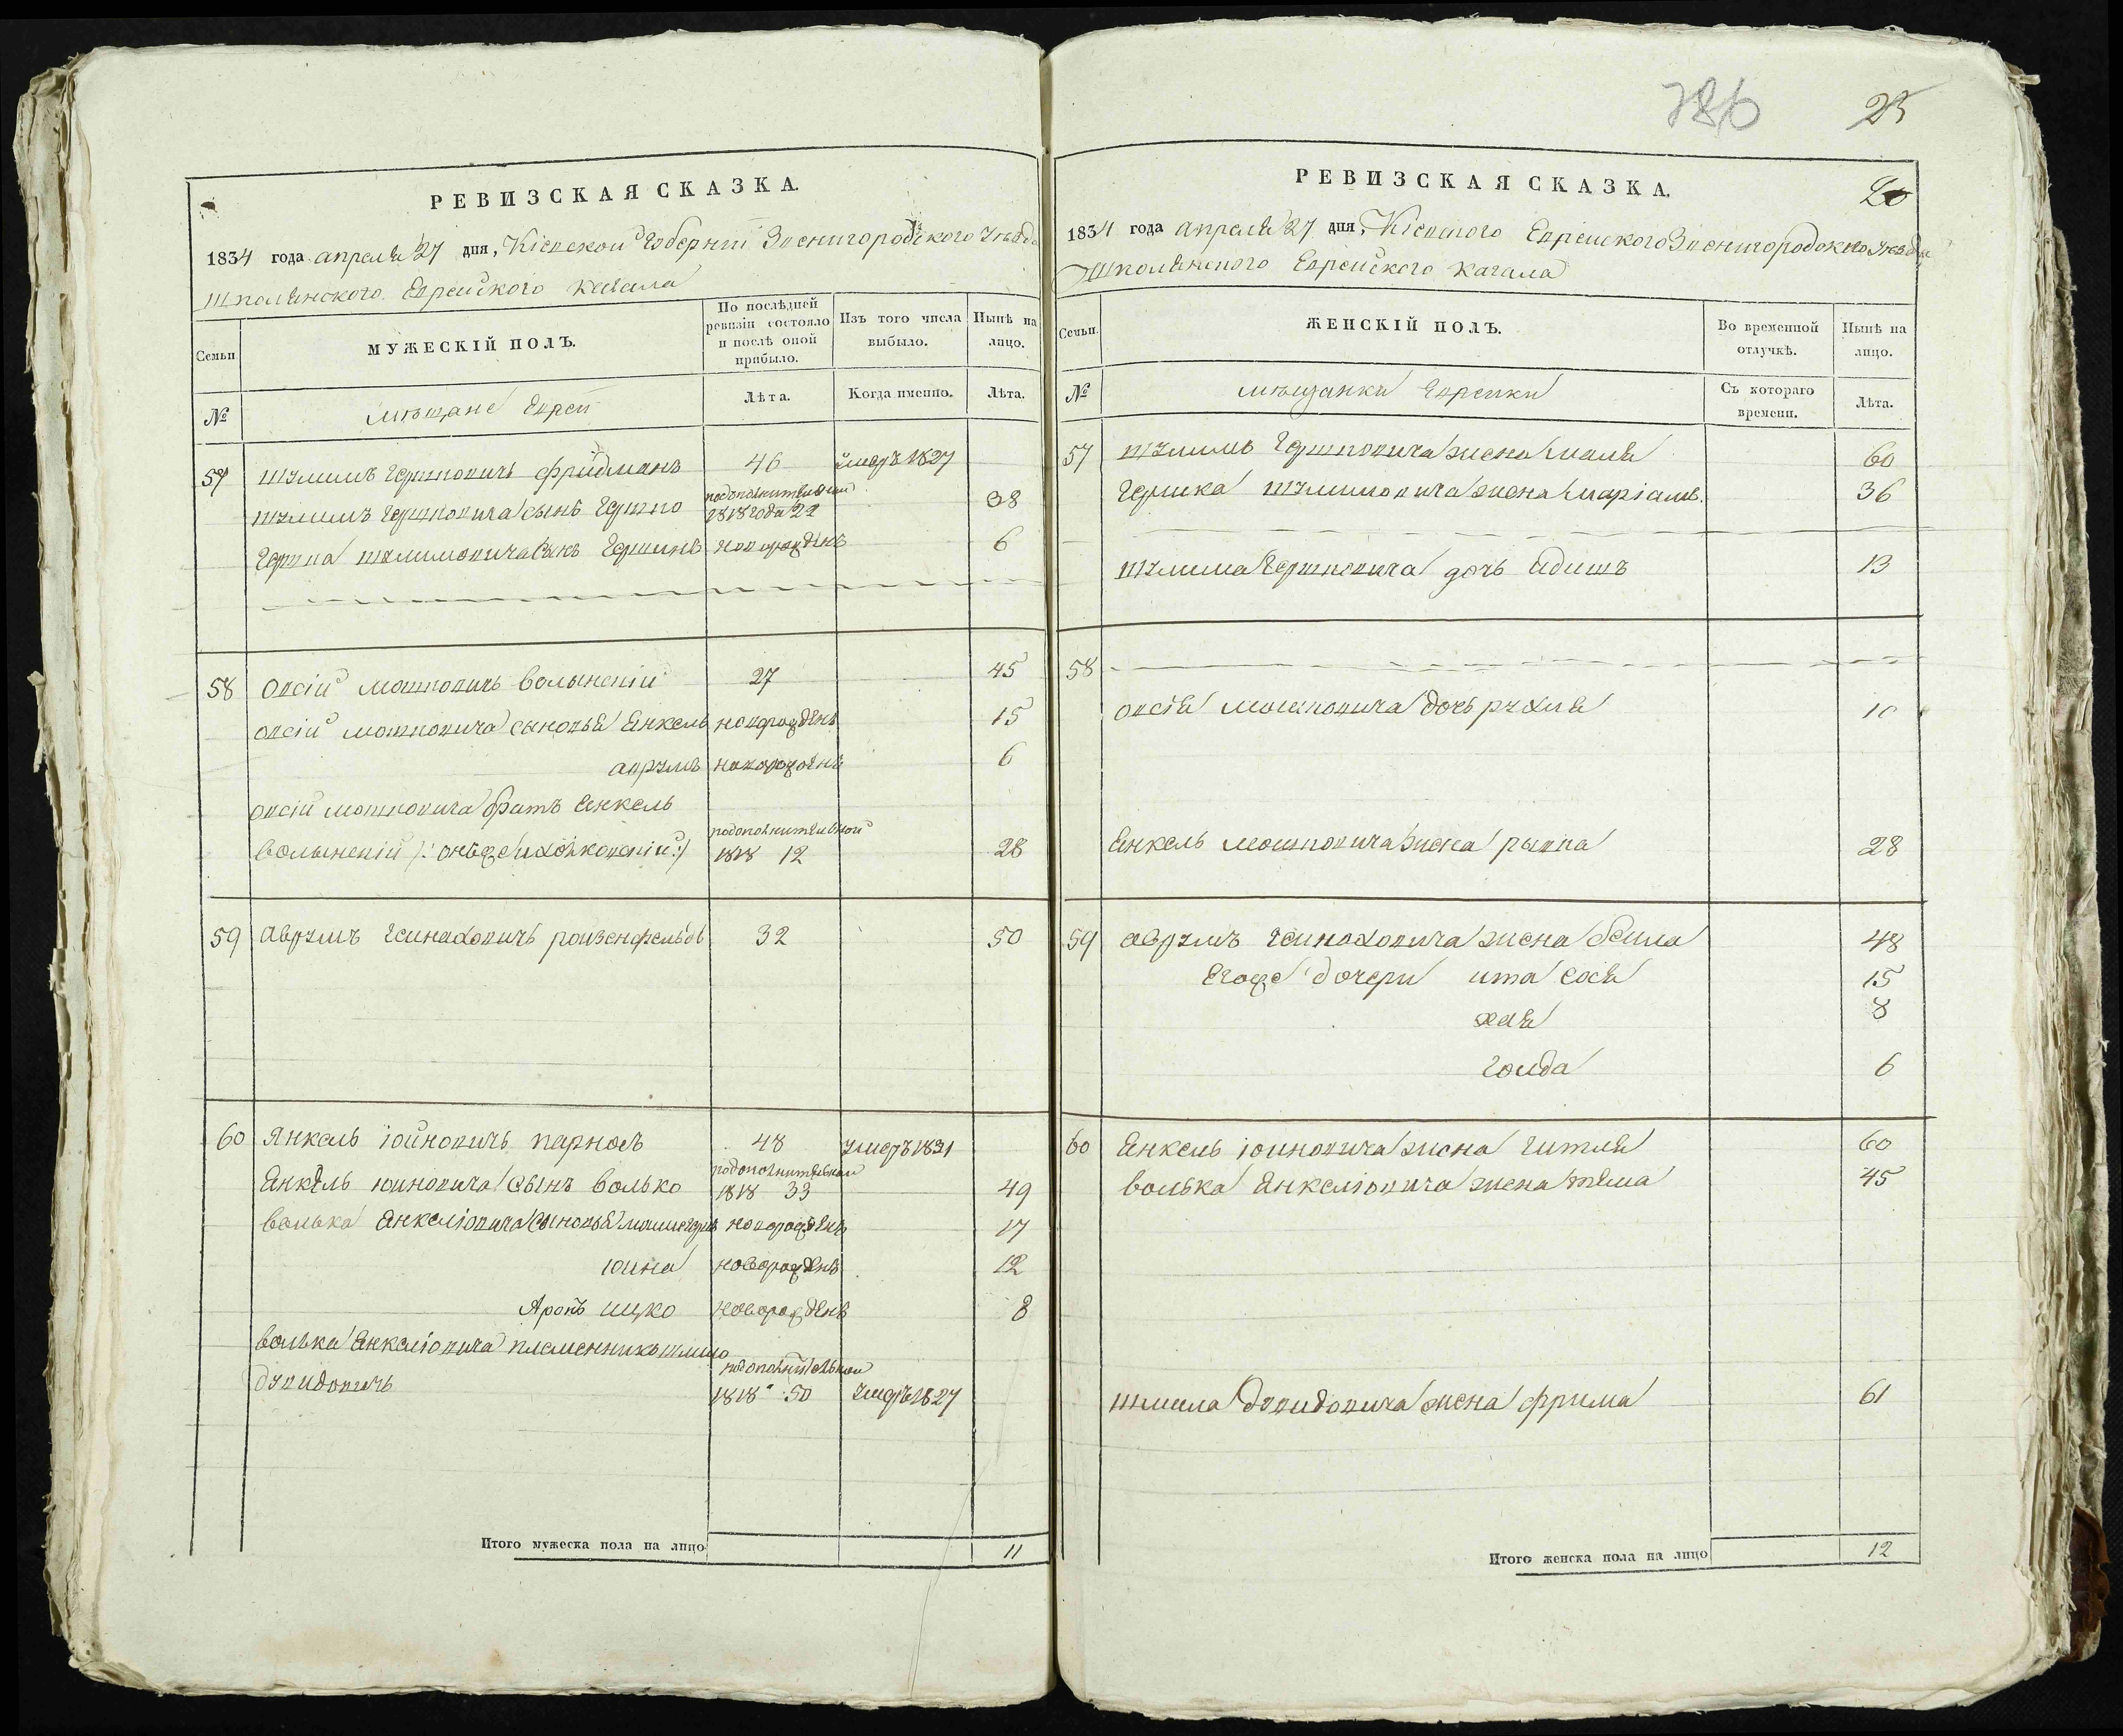 РЕВИЗСКАЯ СКАЗКА.
1834 года апреля 27 дня, Кіевской Губерніи Звенигородского уѣзда
Шполянского Еврейского Кагала
Семьи.
МУЖЕСКІЙ ПОЛЪ.
По послѣдней ревизіи состояло и послѣ оной прибыло.
Изъ того числа выбыло.
Нынѣ на лицо.
№
мѣщане Евреи
Лѣта.
Когда именно.
Лѣта.
57 шулимъ Гершковичь фридманъ 46 умеръ 1827
шулимъ Гершковича сынъ Гершко подополнительной 1818 года 22 38
6
58 овсій мошковичь волынскій 27 45
овсій мошковича сыновья Янкель новорожденъ 15
аврумъ новорожденъ 6
овсій мошковича братъ Янкель
волынскій подополнительной 1818 12 28
59 аврумъ ройзенфельдъ 32 50
60 Янкель іойновичь 48 умеръ 1831
Янкель юйновича сынъ волько подополнительной 1818 33 49
волька Янкеліовича сыновья новорожденъ 17
юйна новорожденъ 12
Аронъ ицко новорожденъ 8
волька Янкеліовича племенникъ шмило
дувидовичь подополнительной 1818 50 умеръ 1827
Итого мужеска пола на лицо 11
786 25
РЕВИЗСКАЯ СКАЗКА.
1834 года апреля 27 дня, Звенигородского уѣзда
Шполянского Еврейского Кагала
Семьи.
ЖЕНСКІЙ ПОЛЪ.
Во временной отлучкѣ.
Нынѣ на лицо.
№
мѣщанки Еврейки
Съ котораго времени.
Лѣта.
57 шулимъ Гершковича жена маля 60
шулимовича жена маріамъ. 36
шулима Гершковича дочь 13
58
овсія мошковича дочь рухля 10
Янкель мошковича жена рывка 28
59 аврумъ жена бейла 48
Егоже дочери ита сося 15
хая 8
голда 6
60 Янкель іойновича жена гитля 60
волька Янкеліовича жена 45
шмила дувидовича жена фрима 61
Итого женска пола на лицо 12